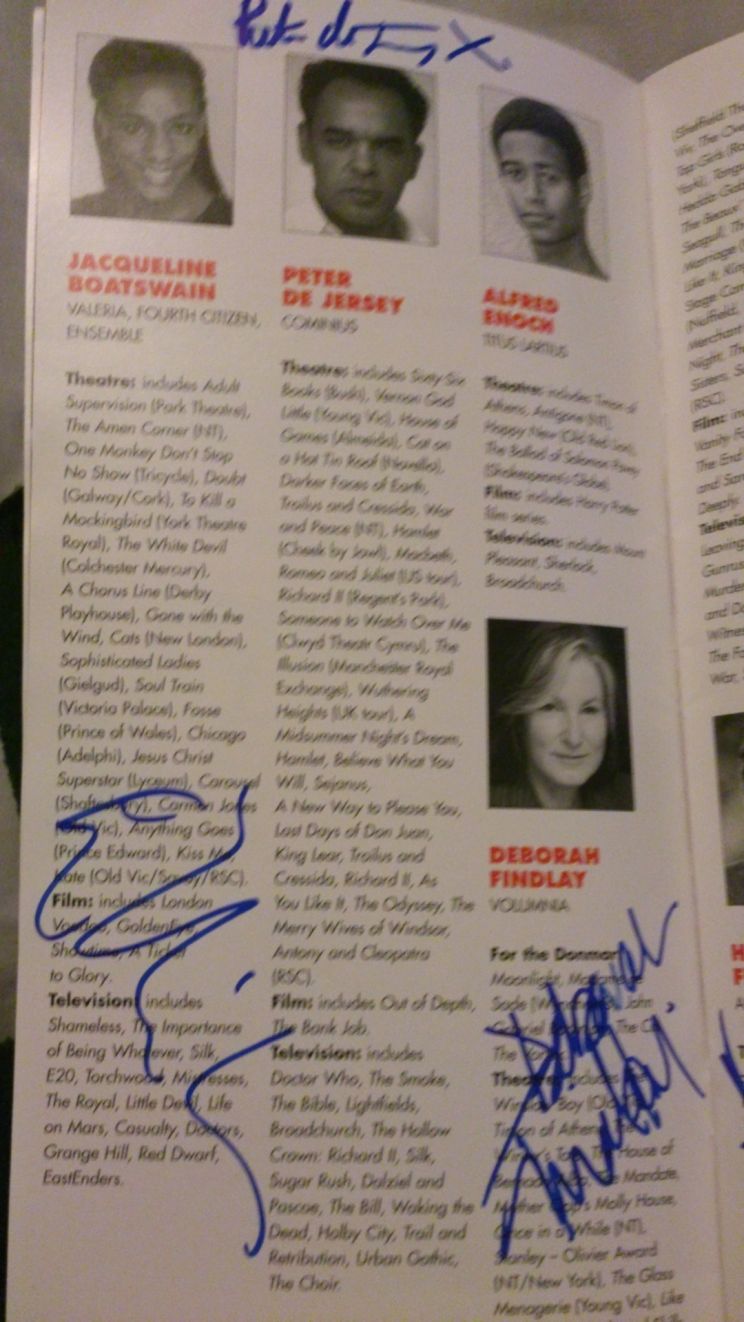 Peter de Jersey x
JACQUELINE
BOATSWAIN
VALERIA, FOURTH CITIZEN,
ENSEMBLE
Theatre: includes Adult
Supervision (Park Theatre),
The Amen Corner (NT),
One Monkey Don't Stop
No Show (Tricycle), Doubt
(Galway/Cork), To Kill a
Mockingbird (York Theatre
Royal), The White Devil
(Colchester Mercury),
A Chorus Line (Derby
Playhouse), Gone with the
Wind, Cats (New London),
Sophisticated Ladies
(Gielgud), Soul Train
(Victoria Palace), Fosse
(Prince of Wales), Chicago
(Adelphi), Jesus Christ
Superstar (Lyceum), Carousel
(Shaftesbury), Carmen Jones
(Old Vic), Anything Goes
(Prince Edward), Kiss Me,
Kate (Old Vic/Savoy/RSC).
Film: includes London
Voodoo, GoldenEye,
Showtime, A Ticket
to Glory.
Television: includes
Shameless, The Importance
of Being Whatever, Silk,
E20, Torchwood, Mistresses,
The Royal, Little Devil, Life
on Mars, Casualty, Doctors,
Grange Hill, Red Dwarf,
EastEnders.
PETER
DE JERSEY
COMINIUS
Theatre: includes Sixty Six
Books (Bush), Vernon God
Little (Young Vic), House of
Games (Almeida), Cat on
a Hot Tin Roof (Novello),
Darker Faces of Earth,
Troilus and Cressida, War
and Peace (NT), Hamlet
(Cheek by Jowl), Macbeth,
Romeo and Juliet (US tour),
Richard II (Regent's Park),
Someone to Watch Over Me
(Clwyd Theatr Cymru), The
Illusion (Manchester Royal
Exchange), Wuthering
Heights (UK tour), A
Midsummer Night's Dream,
Hamlet, Believe What You
Will, Sejanus,
A New Way to Please You,
Last Days of Don Juan,
King Lear, Troilus and
Cressida, Richard II, As
You Like It, The Odyssey, The
Merry Wives of Windsor,
Antony and Cleopatra
(RSC).
Film: includes Out of Depth,
The Bank Job.
Television: includes
Doctor Who, The Smoke,
The Bible, Lightfields,
Broadchurch, The Hollow
Crown: Richard II, Silk,
Sugar Rush, Dalziel and
Pascoe, The Bill, Waking the
Dead, Holby City, Trail and
Retribution, Urban Gothic,
The Choir.
ALFRED
ENOCH
TITUS LARTIUS
Theatre: includes Timon of
Athens, Antigone (NT),
Happy New (Old Red Lion),
The Ballad of Solomon Pavey
(Shakespeare's Globe).
Film: includes Harry Potter
film series.
Television: includes Mount
Pleasant, Sherlock,
Broadchurch.
DEBORAH
FINDLAY
VOLUMNIA
For the Donmar:
Moonlight, Madame de
Sade (Wyndham's), John
Gabriel Borkman, The Cut,
The Vortex.
Theatre: includes The
Winslow Boy (Old Vic),
Timon of Athens, The
Winter's Tale, The House of
Bernarda Alba, The Mandate,
Mother Clap's Molly House,
Once in a While (NT),
Stanley – Olivier Award
(NT/New York), The Glass
Menagerie (Young Vic), Like
Deborah
Findlay